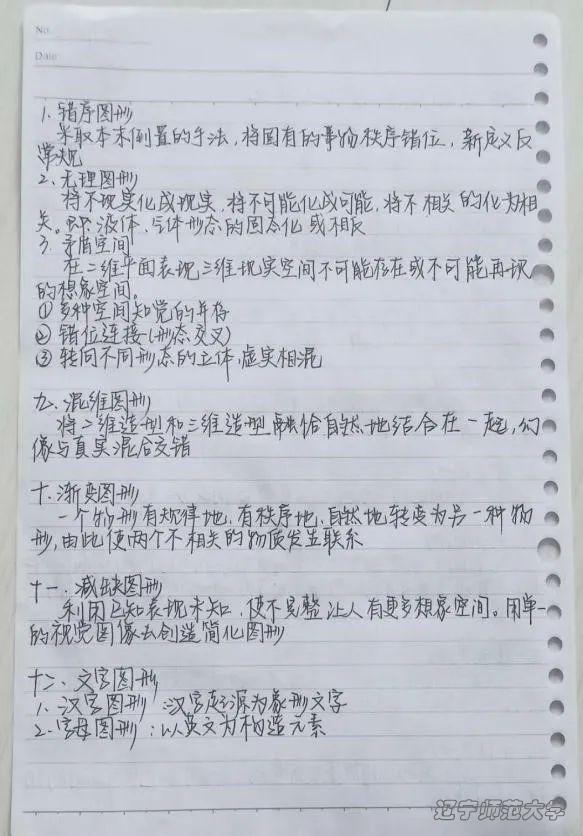 No.
Date
1. 错序图形
采取本末倒置的手法，将固有的事物秩序错位，新定义反
常规
2. 无理图形
将不现实化成现实，将不可能化成可能，将不相关的化为相
关。即：液体、气体形态的固态化或相反
3. 矛盾空间
在二维平面表现三维现实空间不可能存在或不可能再现
的想象空间。
① 多种空间知觉的并存
② 错位连接（形态交叉）
③ 转向不同形态的立体，虚实相混
九、混维图形
将二维造型和三维造型融恰自然地结合在一起，幻
像与真实混合交错
十、渐变图形
一个物形有规律地、有秩序地、自然地转变为另一种物
形，由此使两个不相关的物质发生联系
十一、减缺图形
利用已知表现未知，使不完整让人有更多想象空间。用单一
的视觉图像去创造简化图形
十二、文字图形
1. 汉字图形：汉字起源为象形文字
2. 字母图形：以英文为构造元素
辽宁师范大学